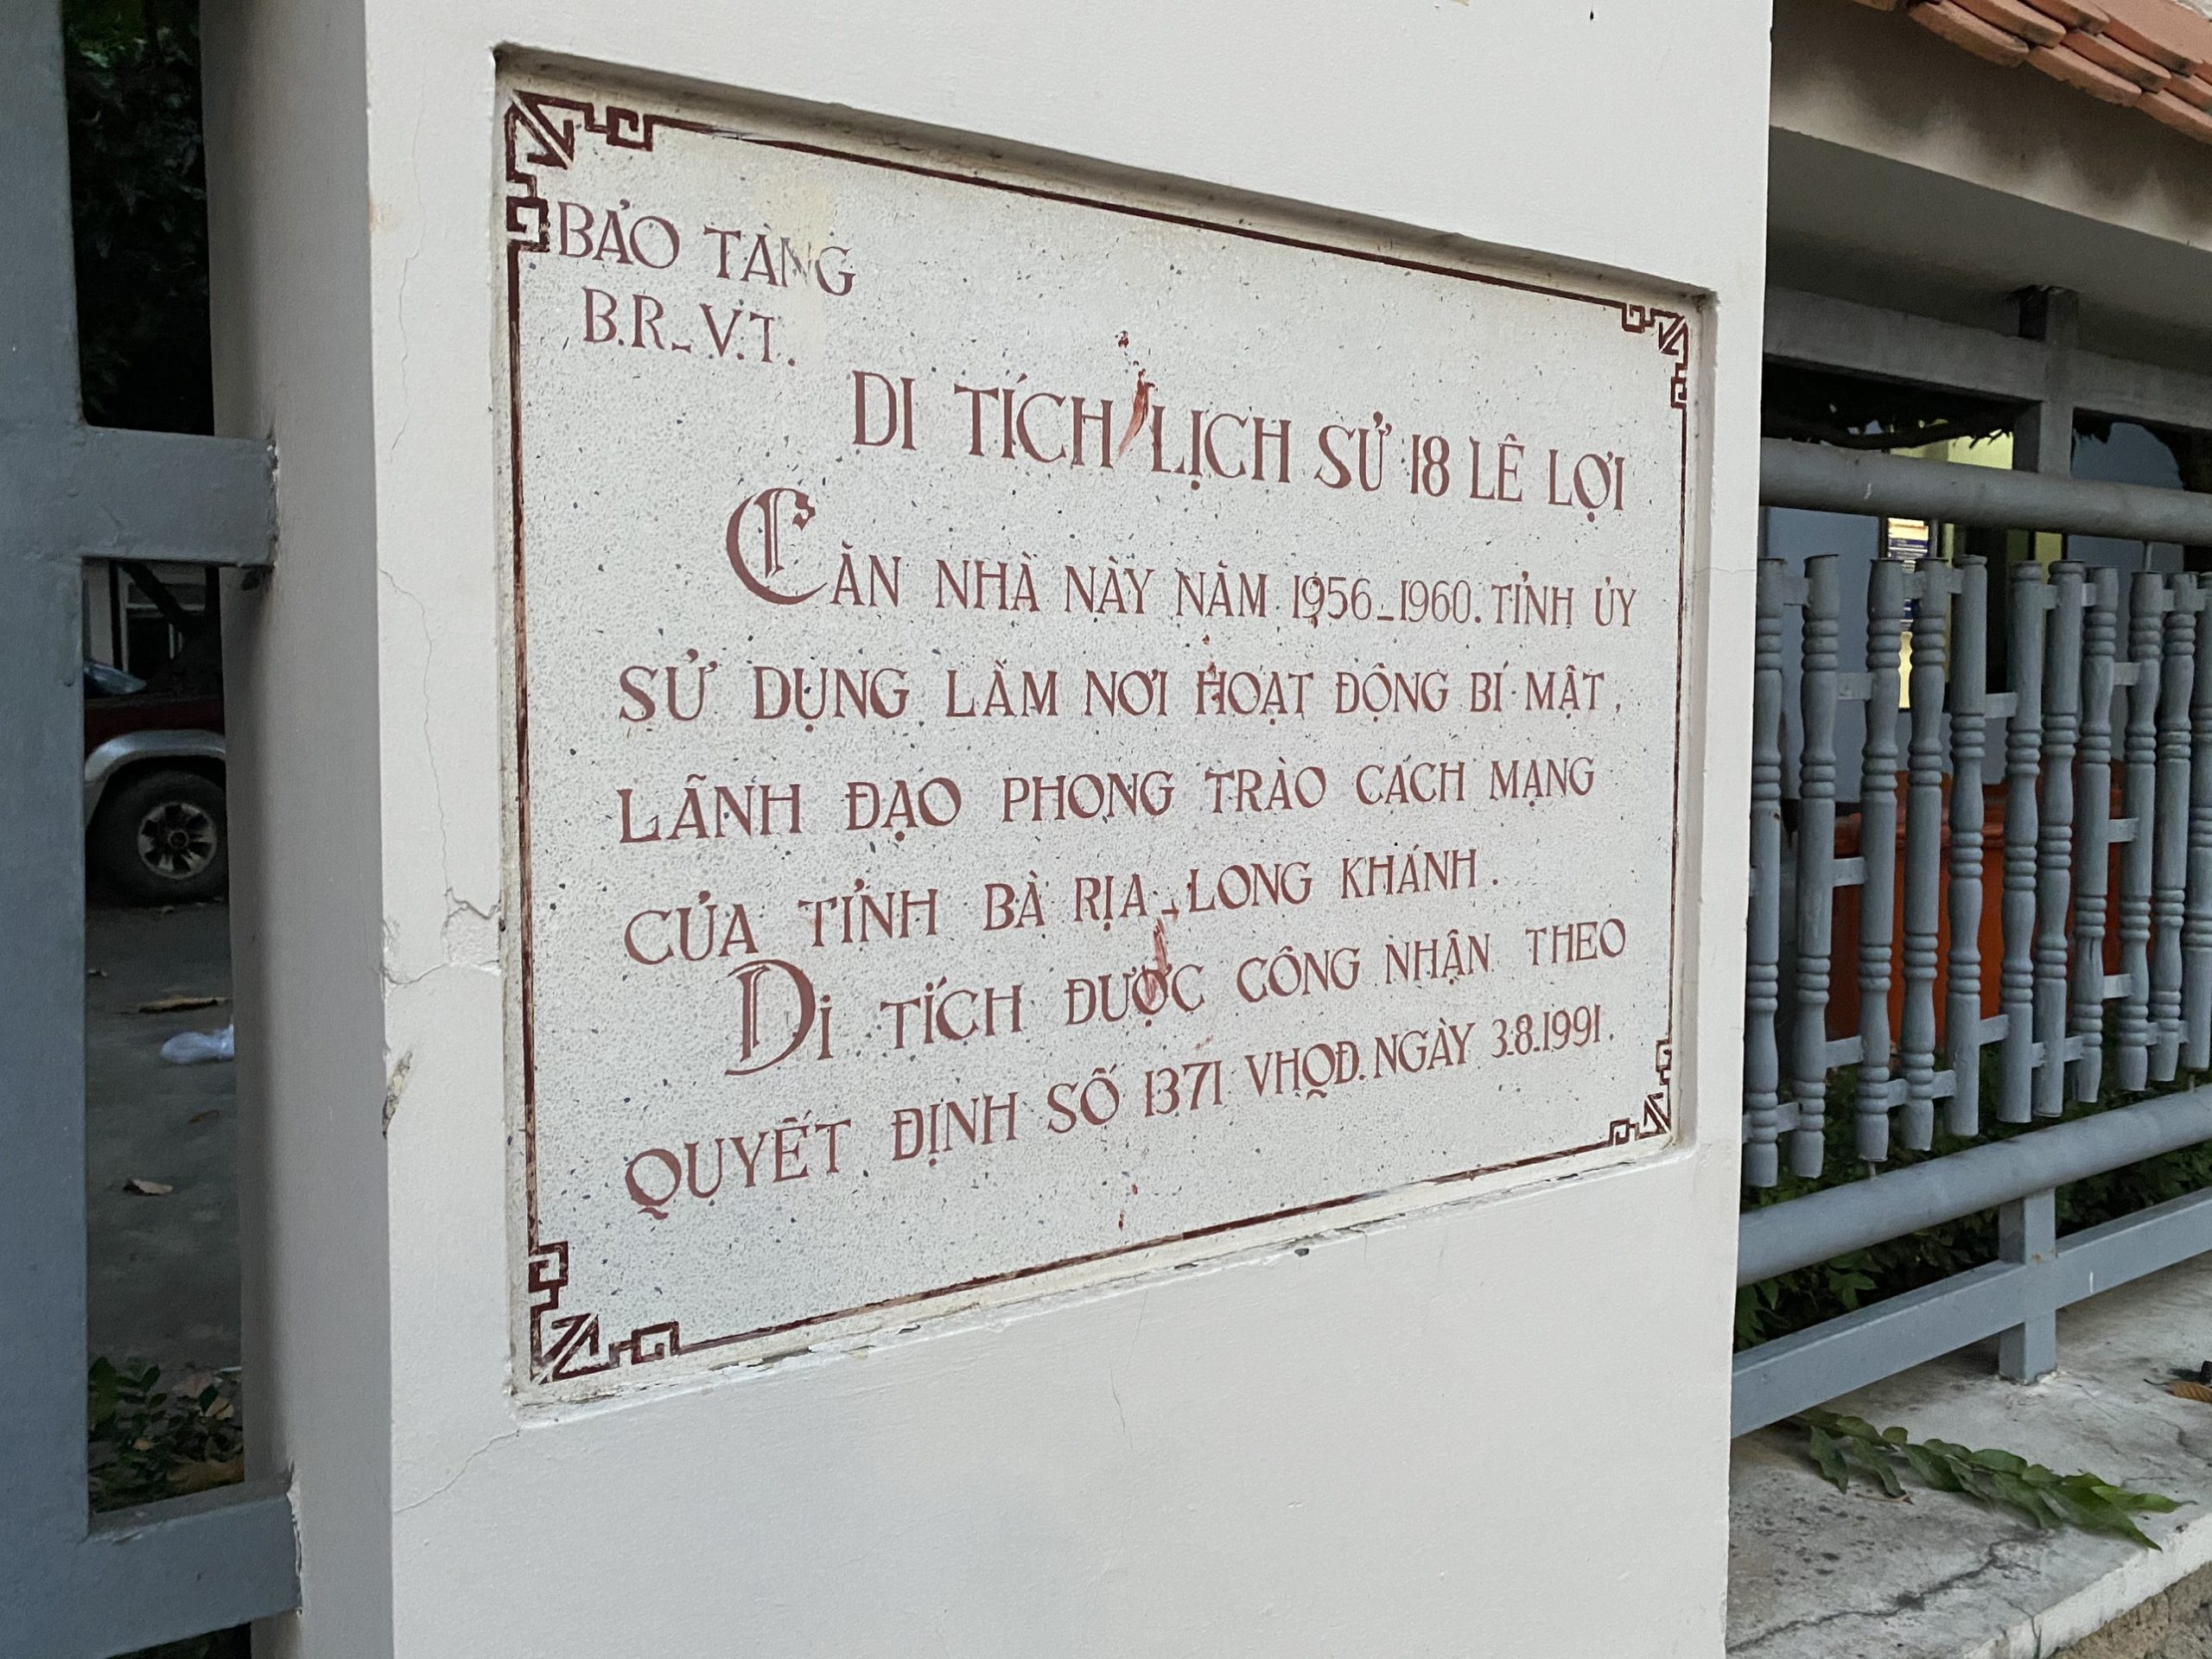 BẢO TÀNG
B.R-V.T.
DI TÍCH LỊCH SỬ 18 LÊ LỢI
CĂN NHÀ NÀY NĂM 1956-1960. TỈNH ỦY
SỬ DỤNG LÀM NƠI HOẠT ĐỘNG BÍ MẬT,
LÃNH ĐẠO PHONG TRÀO CÁCH MẠNG
CỦA TỈNH BÀ RỊA-LONG KHÁNH.
DI TÍCH ĐƯỢC CÔNG NHẬN THEO
QUYẾT ĐỊNH SỐ 1371 VHQĐ. NGÀY 3.8.1991.